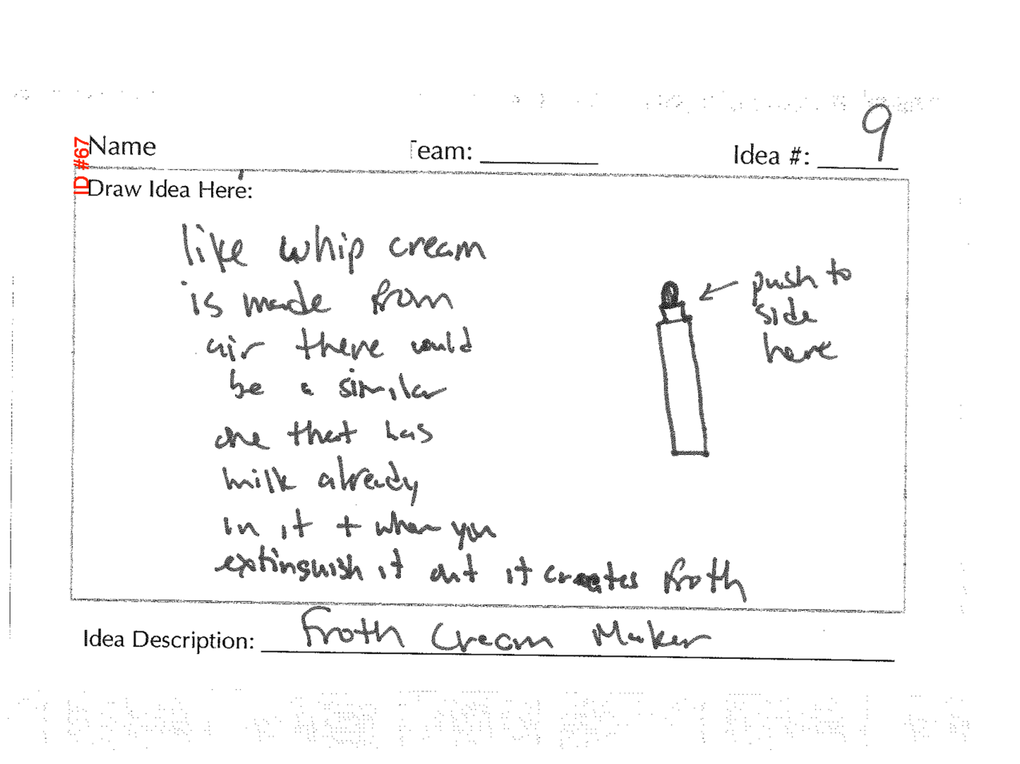 ID #67
Name Team: Idea #: 9
Draw Idea Here:
like whip cream
is made from
air there would
be a similar
one that has
milk already
in it + when you
extinguish it out it creates froth
push to
side
here
Idea Description: Froth Cream Maker